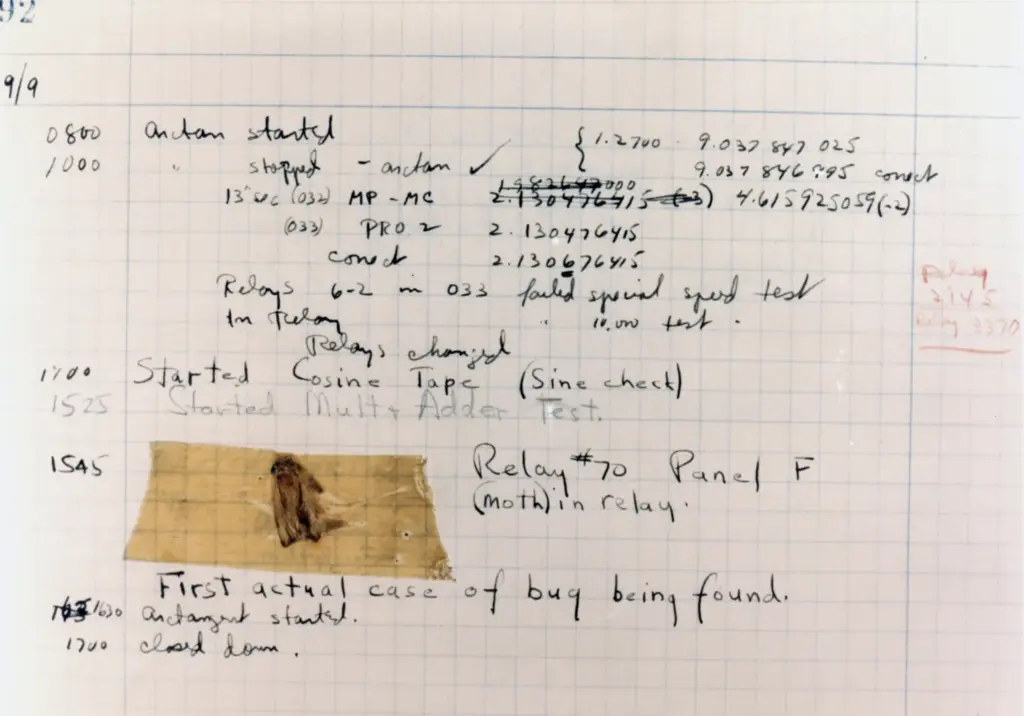 92
9/9
0800 Antan started { 1.2700 9.037 847 025
1000 " stopped - antan ✓ 9.037 846 995 conect
13" sec (032) MP - MC 2.130476415 (-3) 4.615925059(-2)
(033) PRO 2 2.130476415
conect 2.130676415
Relays 6-2 in 033 failed special speed test
In Relay " 10.000 test .
Relay
2145
Relay 3370
Relays changed
1700 Started Cosine Tape (Sine check)
1525 Started Mult + Adder Test.
1545 Relay #70 Panel F
(moth) in relay.
First actual case of bug being found.
1630 Antangent started.
1700 closed down.